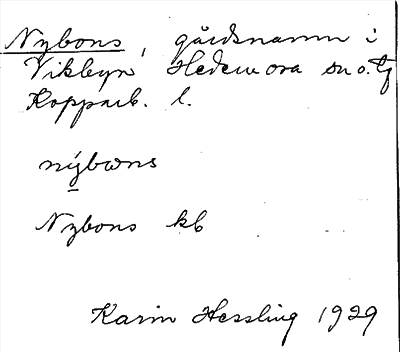 Nybons, gårdsnamn i
Vikbyn Hedemora sn o. tg
Kopparb. l.
nýbωns
Nybons kb
Karin Hessling 1929